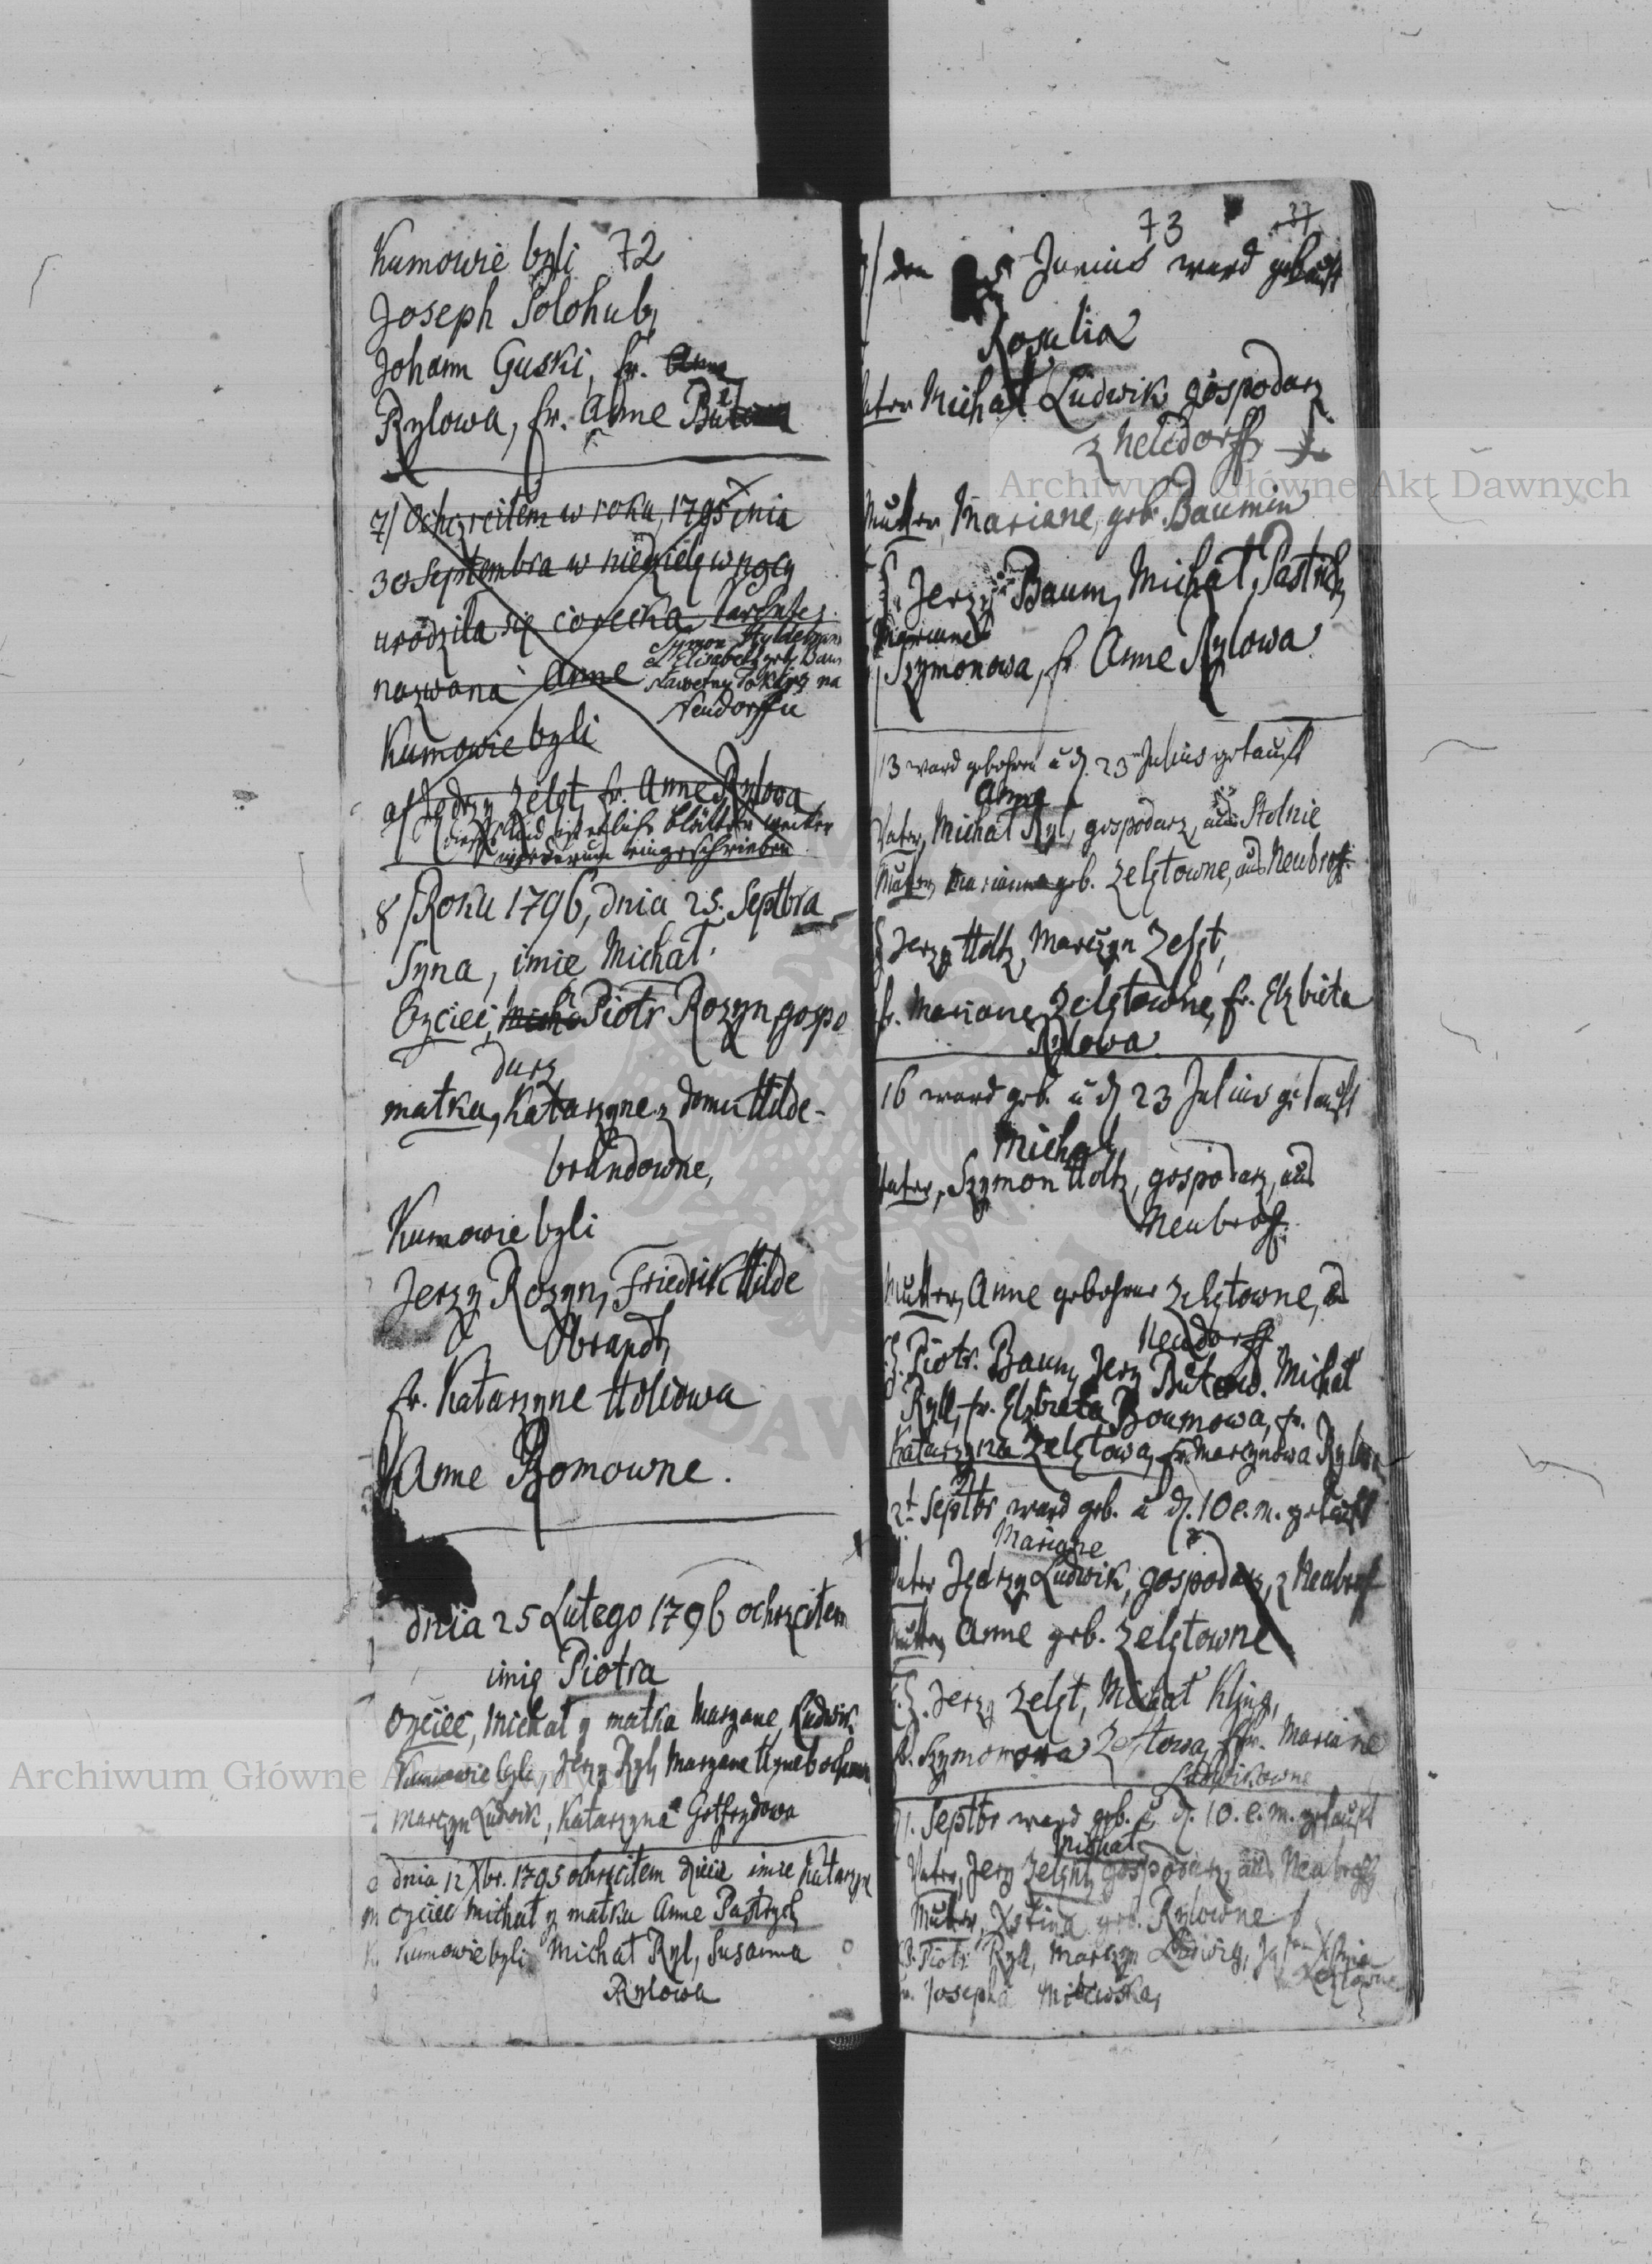 Kumowie byli 72
Joseph Solohub,
Johann Guski, fr. Anna
Rylowa, fr. Anne
7/ Ochrzciłem w roku, 1795 dnia
30 Septembra w niedzielę w nocy
urodziła się córecka
Symon Hyldebran
et Elisabeth geb. Baum
nazwana Anne
na
Neudorffu
Kumowie byli
a/ Jędrzy Zelgt, fr. Anne Rylowa
Blätter weiter
wiederum eingeschrieben
8/ Roku 1796, dnia 25. Septbra
Syna, imie Michał.
Oyciec, Piotr Rozyn gospo
darz
matka, Katarzyne z domu Hilde-
brandowne,
Kumowie byli
Jerzy Rozyn, Friedrik Hilde
brandt,
fr. Katarzyne Holcowa
Anne Bomowne.
dnia 25 Lutego 1796 ochrzciłem
imię Piotra
Oyciec, Michał y matka Maryane, Ludwik
Kumowie byli, Jerzy Ryl, Maryana
Marcyn Ludwik, Katarzyna Gotfrydowa
dnia 12 Xbr. 1795 ochrzciłem dziecie imie Katarzyne
oyciec Michał y matka Anne Pastryk
Kumowie byli Michał Ryl, Susanna
Rylowa
73 37
den Junius ward getauft
Rosalia
Vater Michał Ludwik gospodarz
z Neudorff
Mutter, Mariane, geb. Baumin
Jerzy Baum, Michał Pastryk,
Mariane
Szymonowa, fr Anne Rylowa
13 ward gebohren u d. 23 Julius getauft
Anna
Vater, Michał Ryl, gospodarz, aus Stolnie
Mutter, Marianna geb. Zelgtowne, aus Neubrof.
Jerzy Holtz, Marcyn Zelgt,
fr. Mariane Zelgtowne, fr. Elzbieta
Rylowa
16 ward geb. u d 23 Julius getauft
Michał
Vater, Szymon Holtz, gospodarz, aus
Neubrof.
Mutter, Anne gebohrne Zelgtowne, aus
Neudorff
Piotr. Baum, Jerzy Butow. Michał
Ryll, fr. Elzbieta Boumowa, fr.
Katarzyna Zelgtowa, fr. Marcynowa Rylowa
2t Septbr ward geb. u d. 10 e.m. getauft
Mariane
Vater Jędrzy Ludwik, gospodarz, z Neubrof
Mutter, Anne geb. Zelgtowne
Jerzy Zelgt, Michał Kling,
fr. Szymonowa Zelgtowa, fr. Mariane
Ludwikowne
1. Septbr ward geb. u d. 10. e.m. getauft
Michał
Vater, Jerzy Zelgt, gospodarz, aus Neubrof
Mutter, Xstina geb. Rylowne
Piotr Ryll, Marcyn Ludwig, Xstina
Zelgtowne
Josepha